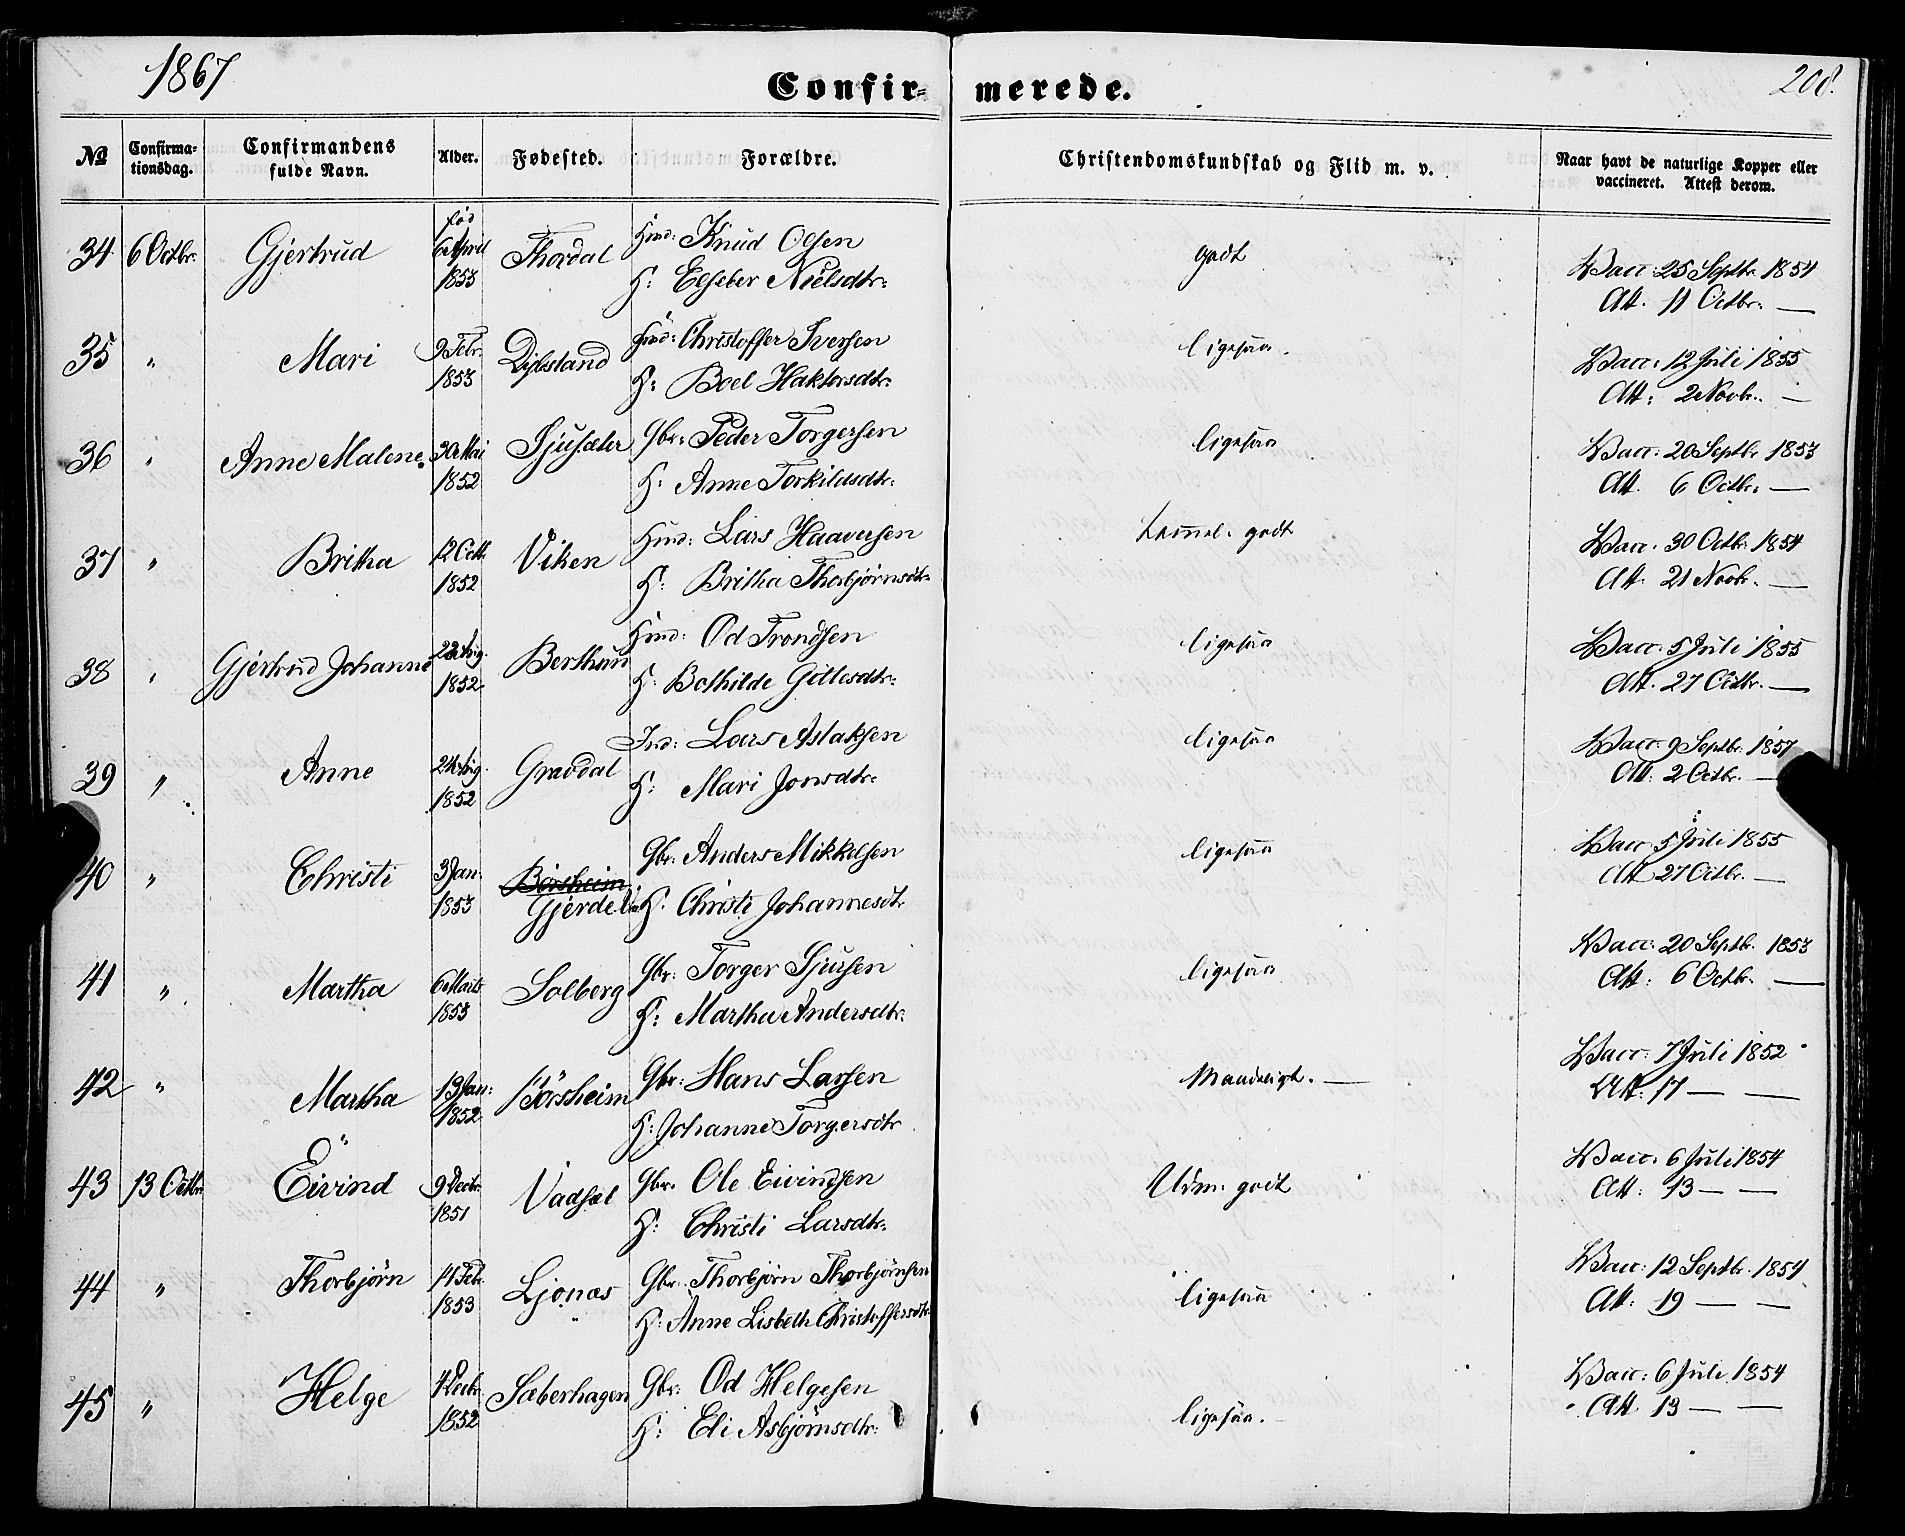 1867
Confir-merede.
208.
№ Confirma-tionsdag. Confirmandens fulde Navn. Alder. Fødested. Forældre. Christendomskundskab og Flid m. v. Naar havt de naturlige Kopper eller vaccineret. Attest derom.
34 6 Octbr. Gjertrud fød 6 April 1853 Thordal Hmd: Knud Olsen godt Vacc: 25 Septbr 1854
H: Elseber Nielsdtr: Att. 11 Octbr. —
35 " Mari 9 Febr. 1853 Hmd: Christoffer Iversen ligesaa. Vacc: 12 Juli 1855
H: Boel Haktorsdtr: Att: 2 Novbr. —
36 " Anne Malene. 30 Mai 1852 Sjusæter Gbr: Peder Torgersen ligesaa Vacc: 20 Septbr 1853
H: Anne Torkildsdtr: Att. 6 Octbr. —
37 " Britha 12 Octb. 1852 Viken Hmd: Lars Haaversen temmel. godt Vacc. 30 Octbr 1854
H: Britha Thorbjørnsdtr: Att: 21 Novbr. —
38 " Gjertrud Johanne 22 Aug. 1852 Berthun Hmd: Od Trondsen ligesaa Vacc: 5 Juli 1855
H: Bothilde Gitlesdtr: Att. 27 Octbr. —
39 " Anne 24 Aug. 1852 Gravdal Ind: Lars Aslaksen ligesaa Vacc: 9 Septbr. 1857
H: Mari Jonsdtr: Att: 2 Octbr. —
40 " Christi 3 Jan: 1853 Börsheim Gjerde Gbr: Anders Mikkelsen ligesaa Vacc 5 Juli 1855
H. Christi Johannesdtr Att 27 Octbr. —
41 " Martha 6 Marts 1853 Solberg Gbr: Torger Sjursen ligesaa Vacc: 20 Septb. 1853
H: Martha Andersdtr: Att: 6 Octbr. —
42 " Martha 19 Jan: 1852 Börsheim Gbr: Hans Larsen Maadeligt. — Vacc: 7 Juli 1852
H: Johanne Torgersdtr Att: 17 — —
43 13 Octbr. Eivind 9 Decbr. 1851 Vadsel Gbr. Ole Eivindsen Udm: godt Vacc. 6 Juli 1854
H: Christi Larsdtr: Att: 13 — —
44 " Thorbjörn 14 Feb. 1853 Ljonæs Gbr: Thorbjörn Thorbjörnsen ligesaa Vacc: 12 Septbr. 1854
H: Anne Lisbeth Christoffersdtr: Att: 19 — —
45 " Helge 4 Decbr. 1852 Sæberhagen Gbr: Od Helgesen ligesaa. Vacc: 6 Juli 1854
H: Eli Asbjørnsdtr: Att 13 — —